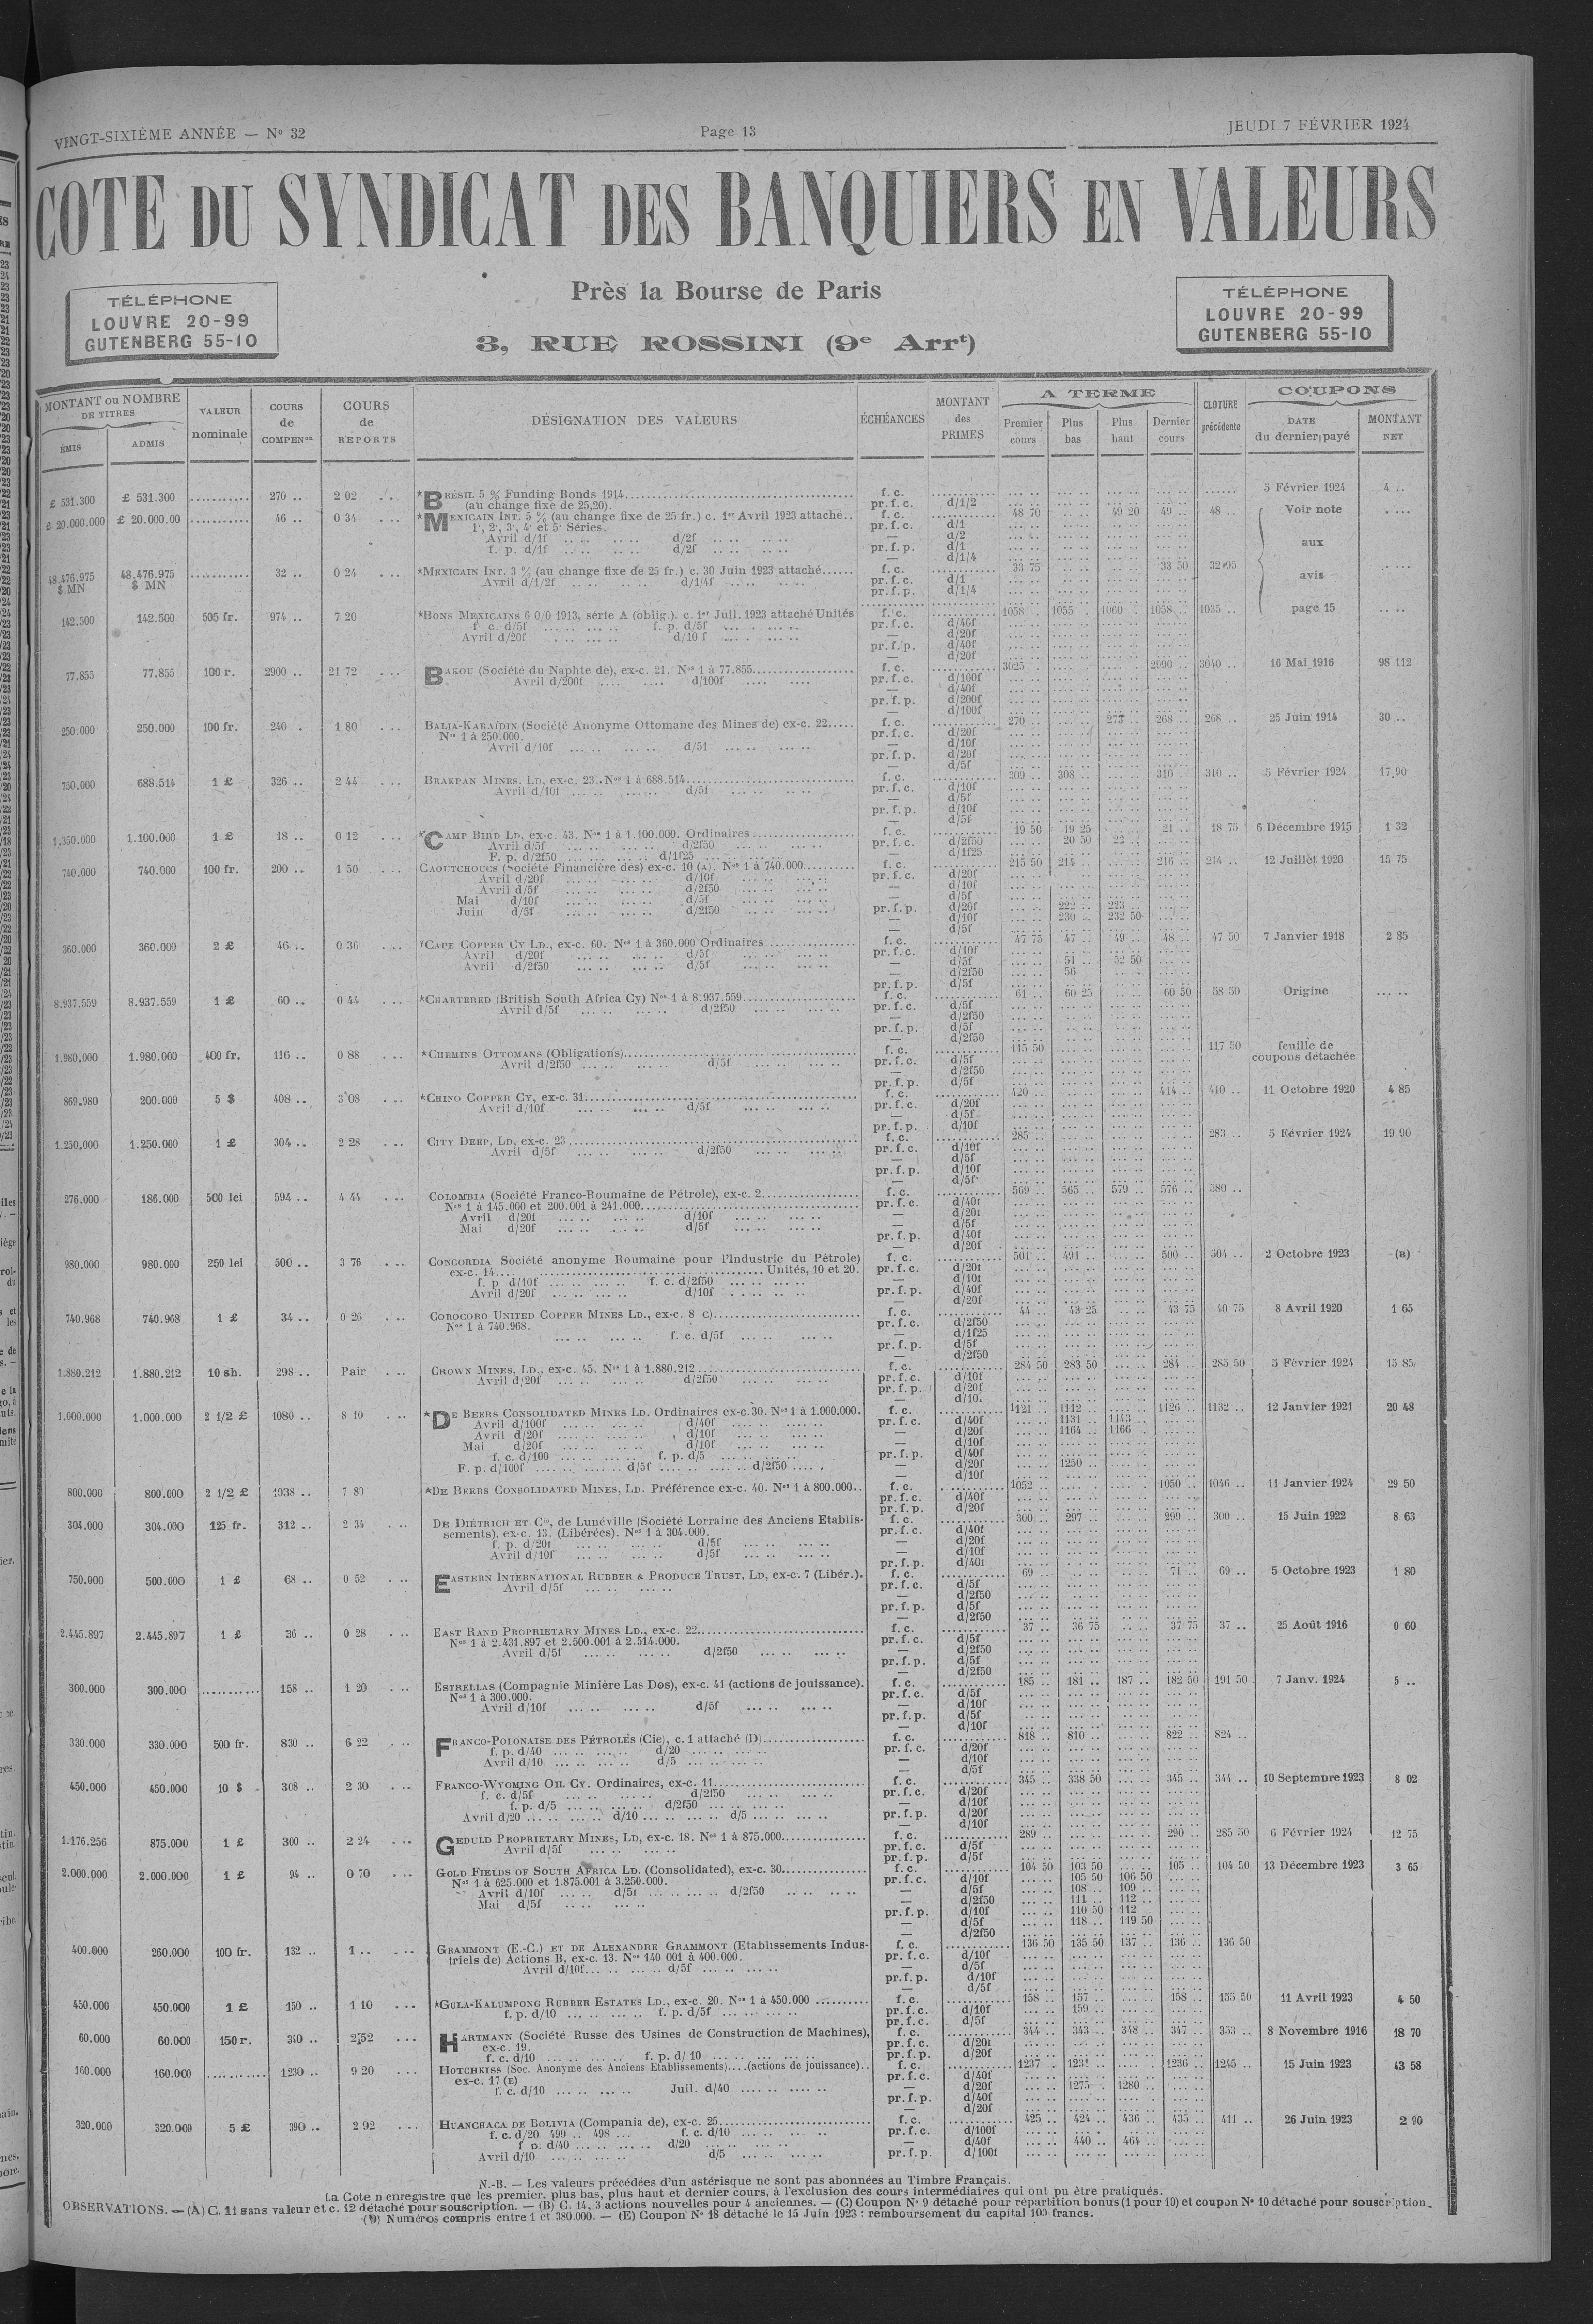 VINGT-SIXIÈME ANNÉE — N° 32 Page 13 JEUDI 7 FÉVRIER 1924
COTE DU SYNDICAT DES BANQUIERS EN VALEURS
Près la Bourse de Paris
3, RUE ROSSINI (9e Arrt)
TÉLÉPHONE
LOUVRE 20-99
GUTENBERG 55-10
TÉLÉPHONE
LOUVRE 20-99
GUTENBERG 55-10
MONTANT ou NOMBRE DE TITRES
ÉMIS ADMIS
VALEUR nominale
COURS de COMPENon
COURS de REPORTS
DÉSIGNATION DES VALEURS
ÉCHÉANCES
MONTANT des PRIMES
A TERME
Premier cours Plus bas Plus haut Dernier cours
CLOTURE précédente
COUPONS
DATE du dernier payé MONTANT NET
£ 531.300 £ 531.300 .......... 270 .. 2 02 ... *BRÉSIL 5 % Funding Bonds 1914 f. c. 5 Février 1924 4 ..
(au change fixe de 25,20). pr. f. c. d/1/2
£ 20.000.000 £ 20.000.00 .......... 46 .. 0 34 ... *MEXICAIN INT. 5 % (au change fixe de 25 fr.) c. 1er Avril 1923 attaché.. f. c. 48 70 49 20 49 .. 48 .. Voir note
1e, 2e, 3e, 4e et 5e Séries. pr. f. c. d/1
Avril d/1f d/2f — d/2
f. p. d/1f d/2f pr. f. p. d/1 aux
— d/1/4
48.476.975 $ MN 48.476.975 $ MN .......... 32 .. 0 24 ... *MEXICAIN INT. 3 % (au change fixe de 25 fr.) c. 30 Juin 1923 attaché f. c. 33 75 33 50 32 05 avis
Avril d/1/2f d/1/4f pr. f. c. d/1
pr. f. p. d/1/4
142.500 142.500 505 fr. 974 .. 7 20 *BONS MEXICAINS 6 0/0 1913, série A (oblig.). c. 1er Juil. 1923 attaché Unités f. c. 1058 .. 1055 .. 1060 .. 1058 .. 1035 .. page 15
f. c. d/5f f. p. d/5f pr. f. c. d/40f
Avril d/20f d/10 f — d/20f
pr. f. p. d/40f
— d/20f
77.855 77.855 100 r. 2900 .. 21 72 ... BAKOU (Société du Naphte de), ex-c. 21. Nos 1 à 77.855 f. c. 3025 2990 .. 3040 .. 16 Mai 1916 98 112
Avril d/200f d/100f pr. f. c. d/100f
— d/40f
pr. f. p. d/200f
— d/100f
250.000 250.000 100 fr. 240 . 1 80 ... BALIA-KARAÏDIN (Société Anonyme Ottomane des Mines de) ex-c. 22 f. c. 270 .. 273 .. 268 .. 268 .. 25 Juin 1914 30 ..
Nos 1 à 250.000. pr. f. c. d/20f
Avril d/10f d/5f — d/10f
pr. f. p. d/20f
— d/5f
750.000 688.514 1 £ 326 .. 2 44 ... BRAKPAN MINES, LD, ex-c. 23. Nos 1 à 688.514 f. c. 309 .. 308 .. 310 .. 310 .. 5 Février 1924 17,90
Avril d/10f d/5f pr. f. c. d/10f
— d/5f
pr. f. p. d/10f
— d/5f
1.350.000 1.100.000 1 £ 18 .. 0 12 ... *CAMP BIRD LD, ex-c. 43. Nos 1 à 1.100.000. Ordinaires f. c. 19 50 19 25 21 .. 18 75 6 Décembre 1915 1 32
Avril d/5f d/2f50 pr. f. c. d/2f50 20 50 22 ..
F. p. d/2f50 d/1f25 — d/1f25
740.000 740.000 100 fr. 200 .. 1 50 ... CAOUTCHOUCS (Société Financière des) ex-c. 10 (A). Nos 1 à 740.000 f. c. 215 50 214 .. 216 .. 214 .. 12 Juillet 1920 15 75
Avril d/20f d/10f pr. f. c. d/20f
Avril d/5f d/2f50 — d/10f
Mai d/10f d/5f — d/5f
Juin d/5f d/2f50 pr. f. p. d/20f 222 .. 223 ..
— d/10f 230 .. 232 50
— d/5f
360.000 360.000 2 £ 46 .. 0 36 ... *CAPE COPPER CY LD., ex-c. 60. Nos 1 à 360.000 Ordinaires f. c. 47 75 47 .. 49 .. 48 .. 47 50 7 Janvier 1918 2 85
Avril d/20f d/5f pr. f. c. d/10f
Avril d/2f50 d/5f — d/5f 51 .. 52 50
— d/2f50 56
pr. f. p. d/5f
8.937.559 8.937.559 1 £ 60 .. 0 44 ... *CHARTERED (British South Africa Cy) Nos 1 à 8.937.559 f. c. 61 .. 60 25 60 50 58 50 Origine
Avril d/5f d/2f50 pr. f. c. d/5f
— d/2f50
pr. f. p. d/5f
— d/2f50
1.980.000 1.980.000 400 fr. 116 .. 0 88 ... *CHEMINS OTTOMANS (Obligations) f. c. 115 50 117 50 feuille de coupons détachée
Avril d/2f50 d/5f pr. f. c. d/5f
— d/2f50
pr. f. p. d/5f
869.980 200.000 5 $ 408 .. 3 08 ... *CHINO COPPER CY, ex-c. 31 f. c. 420 .. 414 .. 410 .. 11 Octobre 1920 4 85
Avril d/10f d/5f pr. f. c. d/20f
— d/5f
pr. f. p. d/10f
1.250.000 1.250.000 1 £ 304 .. 2 28 ... CITY DEEP, LD, ex-c. 23 f. c. 285 .. 283 .. 5 Février 1924 19 90
Avril d/5f d/2f50 pr. f. c. d/10f
— d/5f
pr. f. p. d/10f
— d/5f
276.000 186.000 500 lei 594 .. 4 44 ... COLOMBIA (Société Franco-Roumaine de Pétrole), ex-c. 2 f. c. 569 .. 565 .. 579 .. 576 .. 580 ..
Nos 1 à 145.000 et 200.001 à 241.000 pr. f. c. d/40f
Avril d/20f d/10f — d/20f
Mai d/20f d/5f — d/5f
pr. f. p. d/40f
— d/20f
980.000 980.000 250 lei 500 .. 3 76 ... CONCORDIA Société anonyme Roumaine pour l'industrie du Pétrole) f. c. 501 .. 491 .. 500 .. 504 .. 2 Octobre 1923 (B)
ex-c. 14 Unités, 10 et 20. pr. f. c. d/20f
f. p d/10f f. c. d/2f50 — d/10f
Avril d/20f d/10f pr. f. p. d/40f
— d/20f
740.968 740.968 1 £ 34 .. 0 26 ... COROCORO UNITED COPPER MINES LD., ex-c. 8 c) f. c. 44 .. 43 25 43 75 40 75 8 Avril 1920 1 65
Nos 1 à 740.968. pr. f. c. d/2f50
f. c. d/5f — d/1f25
pr. f. p. d/5f
— d/2f50
1.880.212 1.880.212 10 sh. 298 .. Pair ... CROWN MINES, LD., ex-c. 45. Nos 1 à 1.880.212 f. c. 284 50 283 50 284 .. 285 50 5 Février 1924 15 85
Avril d/20f d/2f50 pr. f. c. d/10f
pr. f. p. d/20f
— d/10.
1.000.000 1.000.000 2 1/2 £ 1080 .. 8 10 ... *DE BEERS CONSOLIDATED MINES LD. Ordinaires ex-c. 30. Nos 1 à 1.000.000. f. c. 1121 .. 1112 .. 1126 .. 1132 .. 12 Janvier 1921 20 48
Avril d/100f d/40f pr. f. c. d/40f 1131 .. 1143 ..
Avril d/20f d/10f — d/20f 1164 .. 1166 ..
Mai d/20f d/10f — d/10f
f. c. d/100 f. p. d/5 pr. f. p. d/40f
F. p. d/100f d/5f d/2f50 — d/20f 1250 ..
— d/10f
800.000 800.000 2 1/2 £ 1038 .. 7 80 *DE BEERS CONSOLIDATED MINES, LD. Préférence ex-c. 40. Nos 1 à 800.000.. f. c. 1052 .. 1050 .. 1046 .. 11 Janvier 1924 29 50
pr. f. c. d/40f
pr. f. p. d/20f
304.000 304.000 125 fr. 312 .. 2 34 ... DE DIÉTRICH ET Cie, de Lunéville (Société Lorraine des Anciens Etablis- f. c. 300 .. 297 .. 299 .. 300 .. 15 Juin 1922 8 63
sements), ex-c. 13. (Libérées). Nos 1 à 304.000. pr. f. c. d/40f
f. p. d/20f d/5f — d/20f
Avril d/10f d/5f — d/10f
pr. f. p. d/40f
750.000 500.000 1 £ 68 .. 0 52 ... EASTERN INTERNATIONAL RUBBER & PRODUCE TRUST, LD, ex-c. 7 (Libér.). f. c. 69 .. 71 .. 69 .. 5 Octobre 1923 1 80
Avril d/5f pr. f. c. d/5f
— d/2f50
pr. f. p. d/5f
— d/2f50
2.445.897 2.445.897 1 £ 36 .. 0 28 ... EAST RAND PROPRIETARY MINES LD., ex-c. 22 f. c. 37 .. 36 75 37 75 37 .. 25 Août 1916 0 60
Nos 1 à 2.431.897 et 2.500.001 à 2.514.000. pr. f. c. d/5f
Avril d/5f d/2f50 — d/2f50
pr. f. p. d/5f
— d/2f50
300.000 300.000 .......... 158 .. 1 20 ... ESTRELLAS (Compagnie Minière Las Dos), ex-c. 41 (actions de jouissance). f. c. 185 .. 181 .. 187 .. 182 50 191 50 7 Janv. 1924 5 ..
Nos 1 à 300.000. pr. f. c. d/5f
Avril d/10f d/5f — d/10f
pr. f. p. d/5f
— d/10f
330.000 330.000 500 fr. 830 .. 6 22 ... FRANCO-POLONAISE DES PÉTROLES (Cie), c. 1 attaché (D) f. c. 818 .. 810 .. 822 .. 824 ..
f. p. d/40 d/20 pr. f. c. d/20f
Avril d/10 d/5 — d/10f
— d/5f
450.000 450.000 10 $ 308 .. 2 30 ... FRANCO-WYOMING OIL CY. Ordinaires, ex-c. 11 f. c. 345 .. 338 50 345 .. 344 .. 10 Septembre 1923 8 02
f. c. d/5f d/2f50 pr. f. c. d/20f
f. p. d/5 d/2f50 — d/10f
Avril d/20 d/10 d/5 pr. f. p. d/20f
— d/10f
1.176.256 875.000 1 £ 300 .. 2 24 ... GEDULD PROPRIETARY MINES, LD, ex-c. 18. Nos 1 à 875.000 f. c. 289 .. 290 .. 285 50 6 Février 1924 12 75
Avril d/5f pr. f. c. d/5f
pr. f. p. d/5f
2.000.000 2.000.000 1 £ 94 .. 0 70 ... GOLD FIELDS OF SOUTH AFRICA LD. (Consolidated), ex-c. 30 f. c. 104 50 103 50 105 .. 104 50 13 Décembre 1923 3 65
Nos 1 à 625.000 et 1.875.001 à 3.250.000. pr. f. c. d/10f 105 50 106 50
Avril d/10f d/5f d/2f50 — d/5f 108 .. 109 ..
Mai d/5f — d/2f50 111 .. 112 ..
pr. f. p. d/10f 110 50 112 ..
— d/5f 118 .. 119 50
— d/2f50
400.000 260.000 100 fr. 132 .. 1 .. ... GRAMMONT (E.-C.) ET DE ALEXANDRE GRAMMONT (Etablissements Indus- f. c. 136 50 135 50 137 .. 136 .. 136 50
triels de) Actions B, ex-c. 13. Nos 140 001 à 400.000. pr. f. c. d/10f
Avril d/10f d/5f — d/5f
pr. f. p. d/10f
— d/5f
450.000 450.000 1 £ 150 .. 1 10 ... *GULA-KALUMPONG RUBBER ESTATES LD., ex-c. 20. Nos 1 à 450.000 f. c. 158 .. 157 .. 158 .. 155 50 11 Avril 1923 4 50
f. p. d/10 f. p. d/5f pr. f. c. d/10f 159 ..
pr. f. c. d/5f
60.000 60.000 150 r. 340 .. 2 52 ... HARTMANN (Société Russe des Usines de Construction de Machines), f. c. 344 .. 343 .. 348 .. 347 .. 353 .. 8 Novembre 1916 18 70
ex-c. 19. pr. f. c. d/20f
f. c. d/10 f. p. d/ 10 pr. f. p. d/20f
160.000 160.000 .......... 1230 .. 9 20 ... HOTCHKISS (Soc. Anonyme des Anciens Etablissements)....(actions de jouissance).. f. c. 1237 .. 1231 .. 1236 .. 1245 .. 15 Juin 1923 43 58
ex-c. 17 (E) pr. f. c. d/40f
f. c. d/10 Juil. d/40 — d/20f 1275 .. 1280 ..
pr. f. p. d/40f
— d/20f
320.000 320.000 5 £ 390 .. 2 92 ... HUANCHACA DE BOLIVIA (Compania de), ex-c. 25 f. c. 425 .. 424 .. 436 .. 435 .. 411 .. 26 Juin 1923 2 90
f. c. d/20 499 .. 498 ... f. c. d/10 pr. f. c. d/100f
f. p. d/40 d/20 — d/40f 440 .. 464 ..
Avril d/10 d/5 pr. f. p. d/100f
N.-B. — Les valeurs précédées d'un astérisque ne sont pas abonnées au Timbre Français.
La Cote n'enregistre que les premier, plus bas, plus haut et dernier cours, à l'exclusion des cours intermédiaires qui ont pu être pratiqués.
OBSERVATIONS. — (A) C. 11 sans valeur et c. 12 détaché pour souscription. — (B) C. 14, 3 actions nouvelles pour 4 anciennes. — (C) Coupon N° 9 détaché pour répartition bonus (1 pour 10) et coupon N° 10 détaché pour souscription.
(D) Numéros compris entre 1 et 380.000. — (E) Coupon N° 18 détaché le 15 Juin 1923 : remboursement du capital 100 francs.